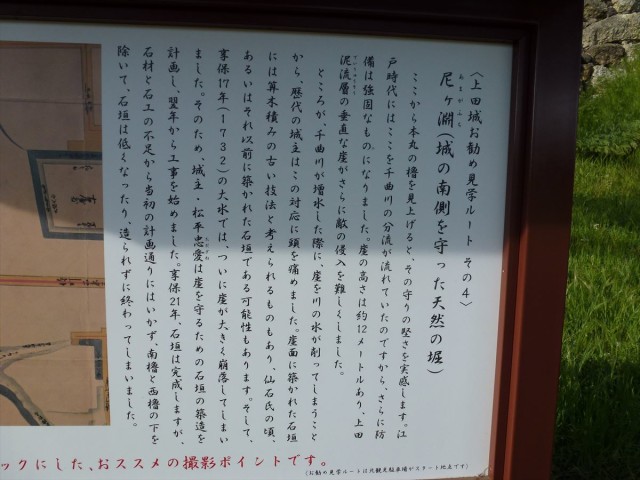 〈上田城お勧め見学ルート その４〉
尼ヶ淵（城の南側を守った天然の堀）
あまがふち
ここから本丸の櫓を見上げると、その守りの堅さを実感します。江
戸時代にはここを千曲川の分流が流れていたのですから、さらに防
備は強固なものになりました。崖の高さは約12メートルあり、上田
泥流層の垂直な崖がさらに敵の侵入を難しくしました。
ところが、千曲川が増水した際に、崖を川の水が削ってしまうこと
から、歴代の城主はこの対応に頭を痛めました。崖面に築かれた石垣
には算木積みの古い技法と考えられるものもあり、仙石氏の頃、
あるいはそれ以前に築かれた石垣である可能性もあります。そして、
享保17年（1732）の大水では、ついに崖が大きく崩落してしまい
ました。そのため、城主・松平忠愛は崖を守るための石垣の築造を
計画し、翌年から工事を始めました。享保21年、石垣は完成しますが、
石材と石工の不足から当初の計画通りにはいかず、南櫓と西櫓の下を
除いて、石垣は低くなったり、造られずに終わってしまいました。
ックにした、おススメの撮影ポイントです。
（お勧め見学ルートは北観光駐車場がスタート地点です）